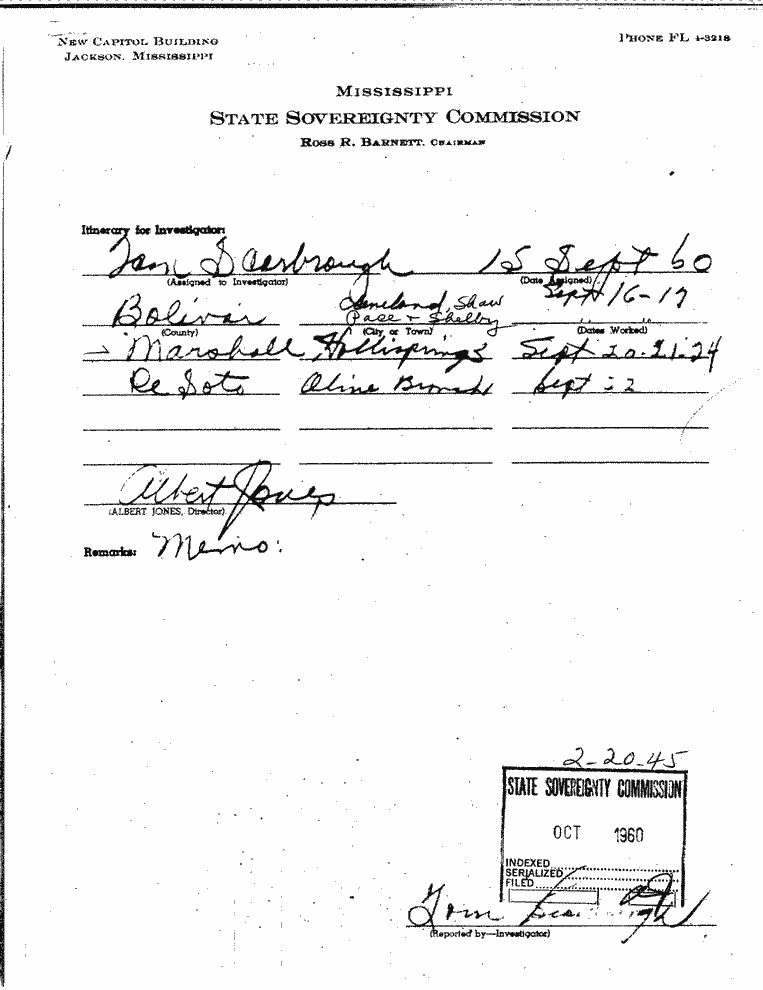 NEW CAPITOL BUILDING
JACKSON, MISSISSIPPI
PHONE FL 4-3218
MISSISSIPPI
STATE SOVEREIGNTY COMMISSION
ROSS R. BARNETT, CHAIRMAN
Itinerary for Investigator:
Tom Scarbrough 15 Sept 60
(Assigned to Investigator) (Date Assigned)
Bolivar Cleveland, Shaw Sept 16-17
Pace + Shelby " "
(County) (City, or Town) (Dates Worked)
Marshall Hollisprings Sept 20-21-24
De Soto Olive Branch Sept
Albert Jones
(ALBERT JONES, Director)
Remarks: Memo:
2-20-45
STATE SOVEREIGNTY COMMISSION
OCT 1960
INDEXED
SERIALIZED
FILED
Tom Scarbrough
(Reported by—Investigator)